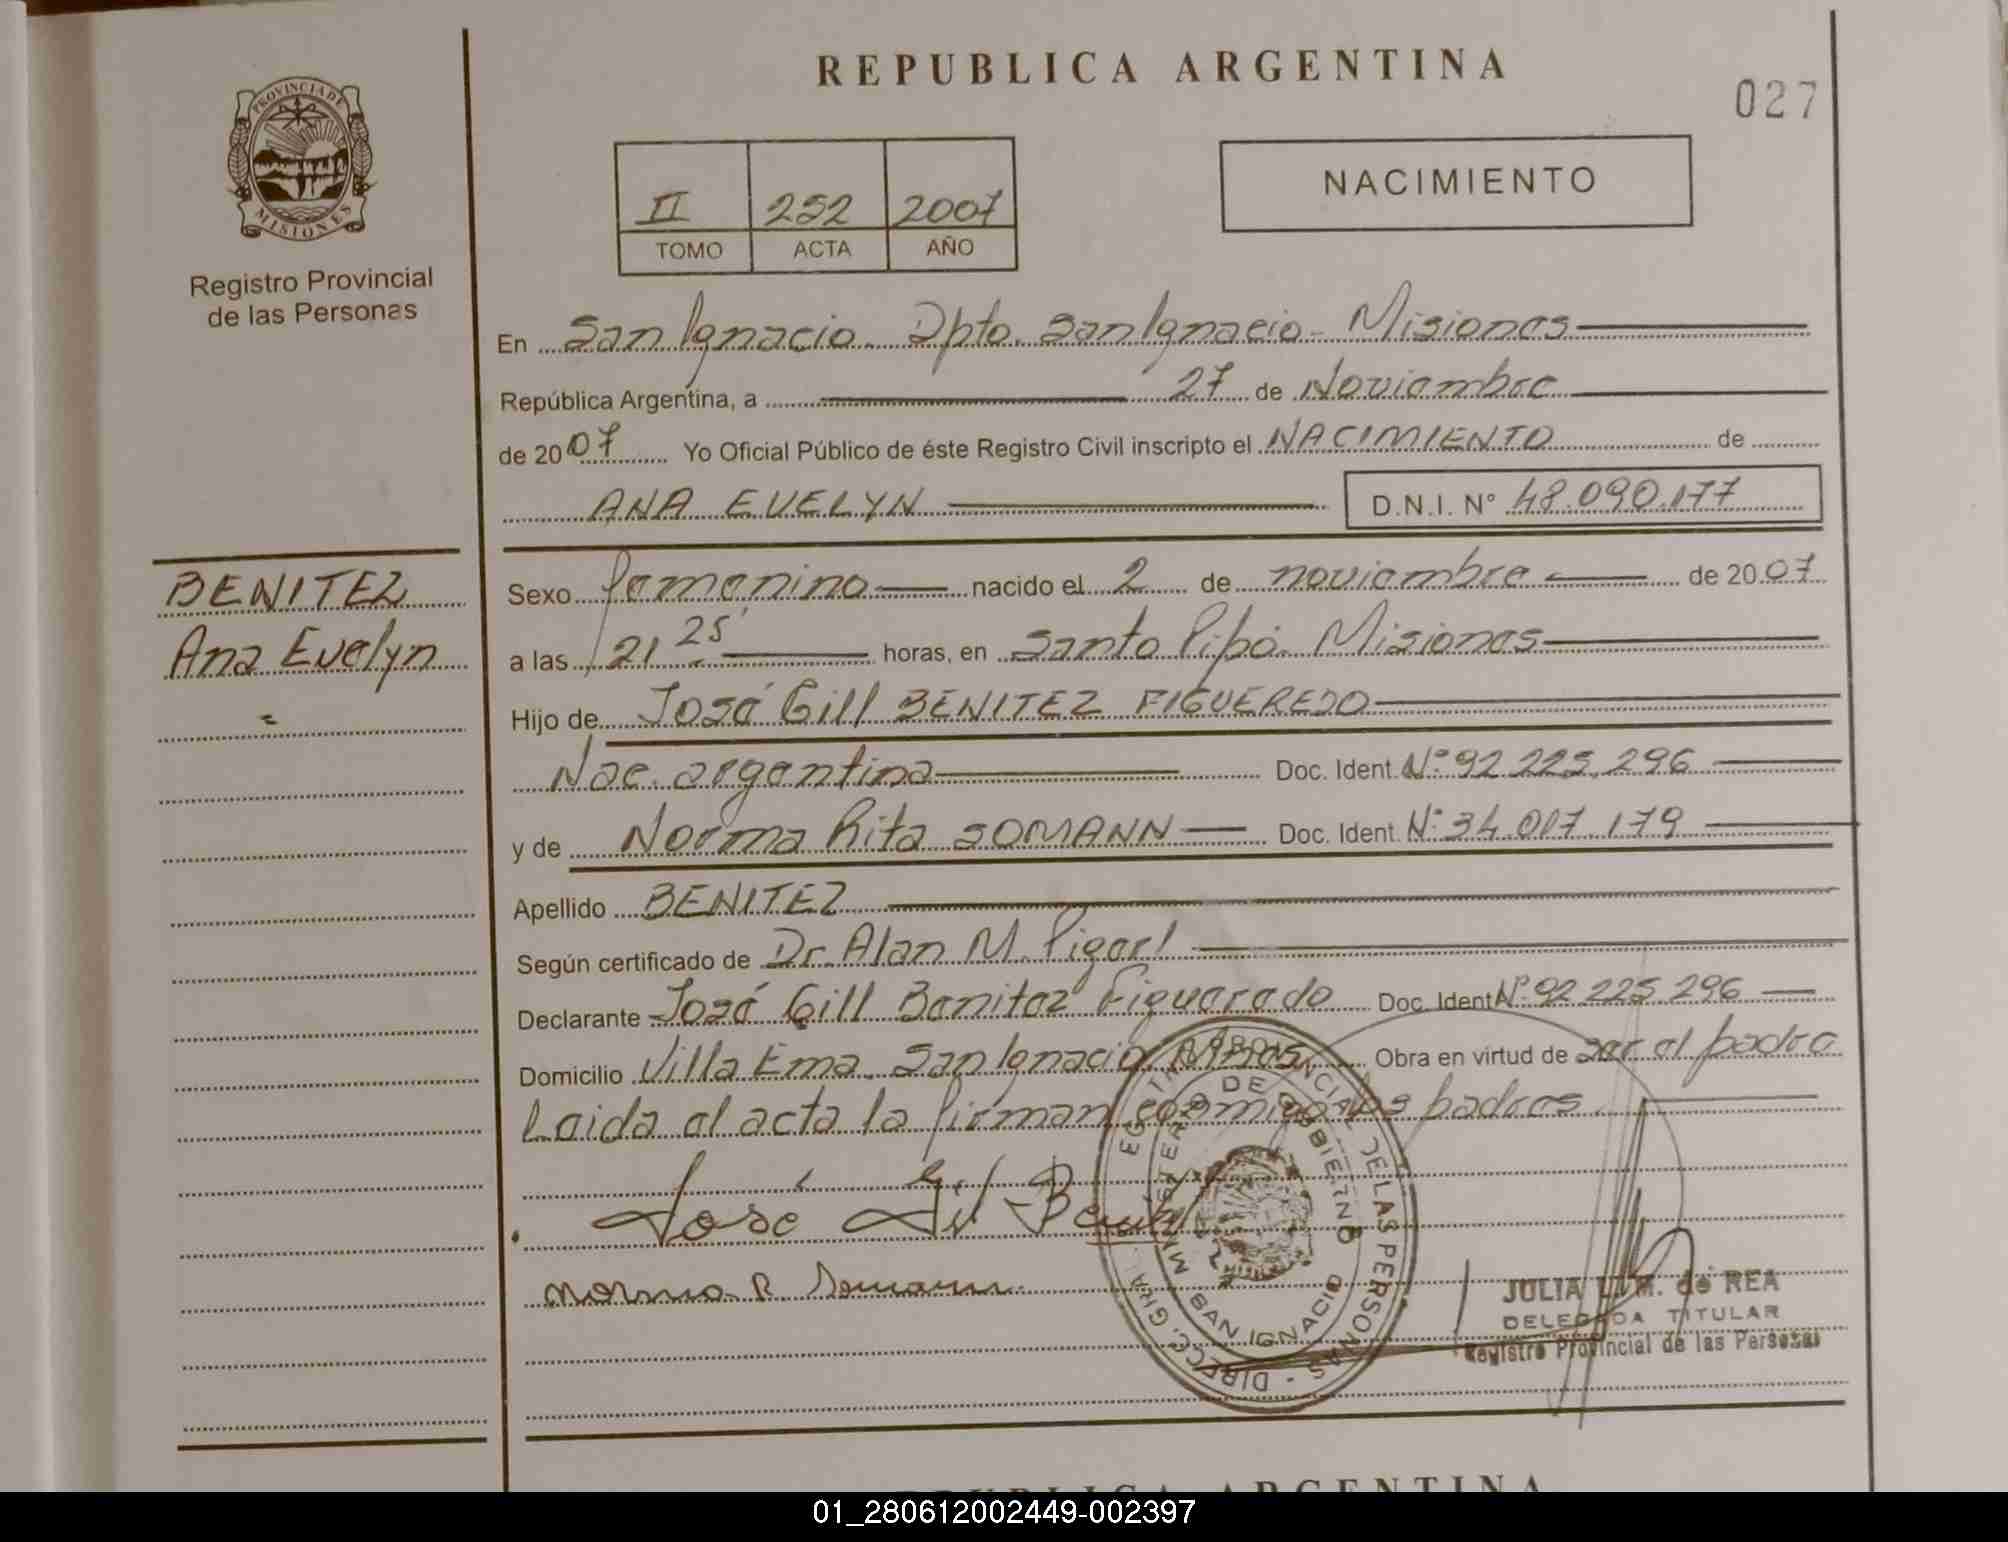 REPUBLICA ARGENTINA
027
PROVINCIA DE
MISIONES
Registro Provincial
de las Personas
II 252 2007
TOMO ACTA AÑO
NACIMIENTO
En San Ignacio. Dpto. San Ignacio - Misiones
República Argentina, a 27 de Noviembre
de 2007 Yo Oficial Público de éste Registro Civil inscripto el NACIMIENTO de
ANA EVELYN D.N.I. N° 48.090.177
BENITEZ
Ana Evelyn
Sexo femenino nacido el 2 de noviembre de 2007
a las 21 25' horas, en Santo Pipó. Misiones
Hijo de José Gill BENITEZ FIGUEREDO
Nac. argentina Doc. Ident. N° 92.225.296
y de Norma Rita SOMANN Doc. Ident. N° 34.017.179
Apellido BENITEZ
Según certificado de Dr. Alan M.
Declarante José Gill Benitez Figueredo Doc. Ident N° 92.225.296
Domicilio Villa Ema. San Ignacio Mnes. Obra en virtud de ser el padre
Leida el acta la firman conmigo los padres
José Gil Benitez
Norma R. Somann
DIRECC. GRAL. REGISTRO PROVINCIAL DE LAS PERSONAS
MINISTERIO DE GOBIERNO
SAN IGNACIO
JULIA M. de REA
DELEGADA TITULAR
Registro Provincial de las Personas
REPUBLICA ARGENTINA
01_280612002449-002397